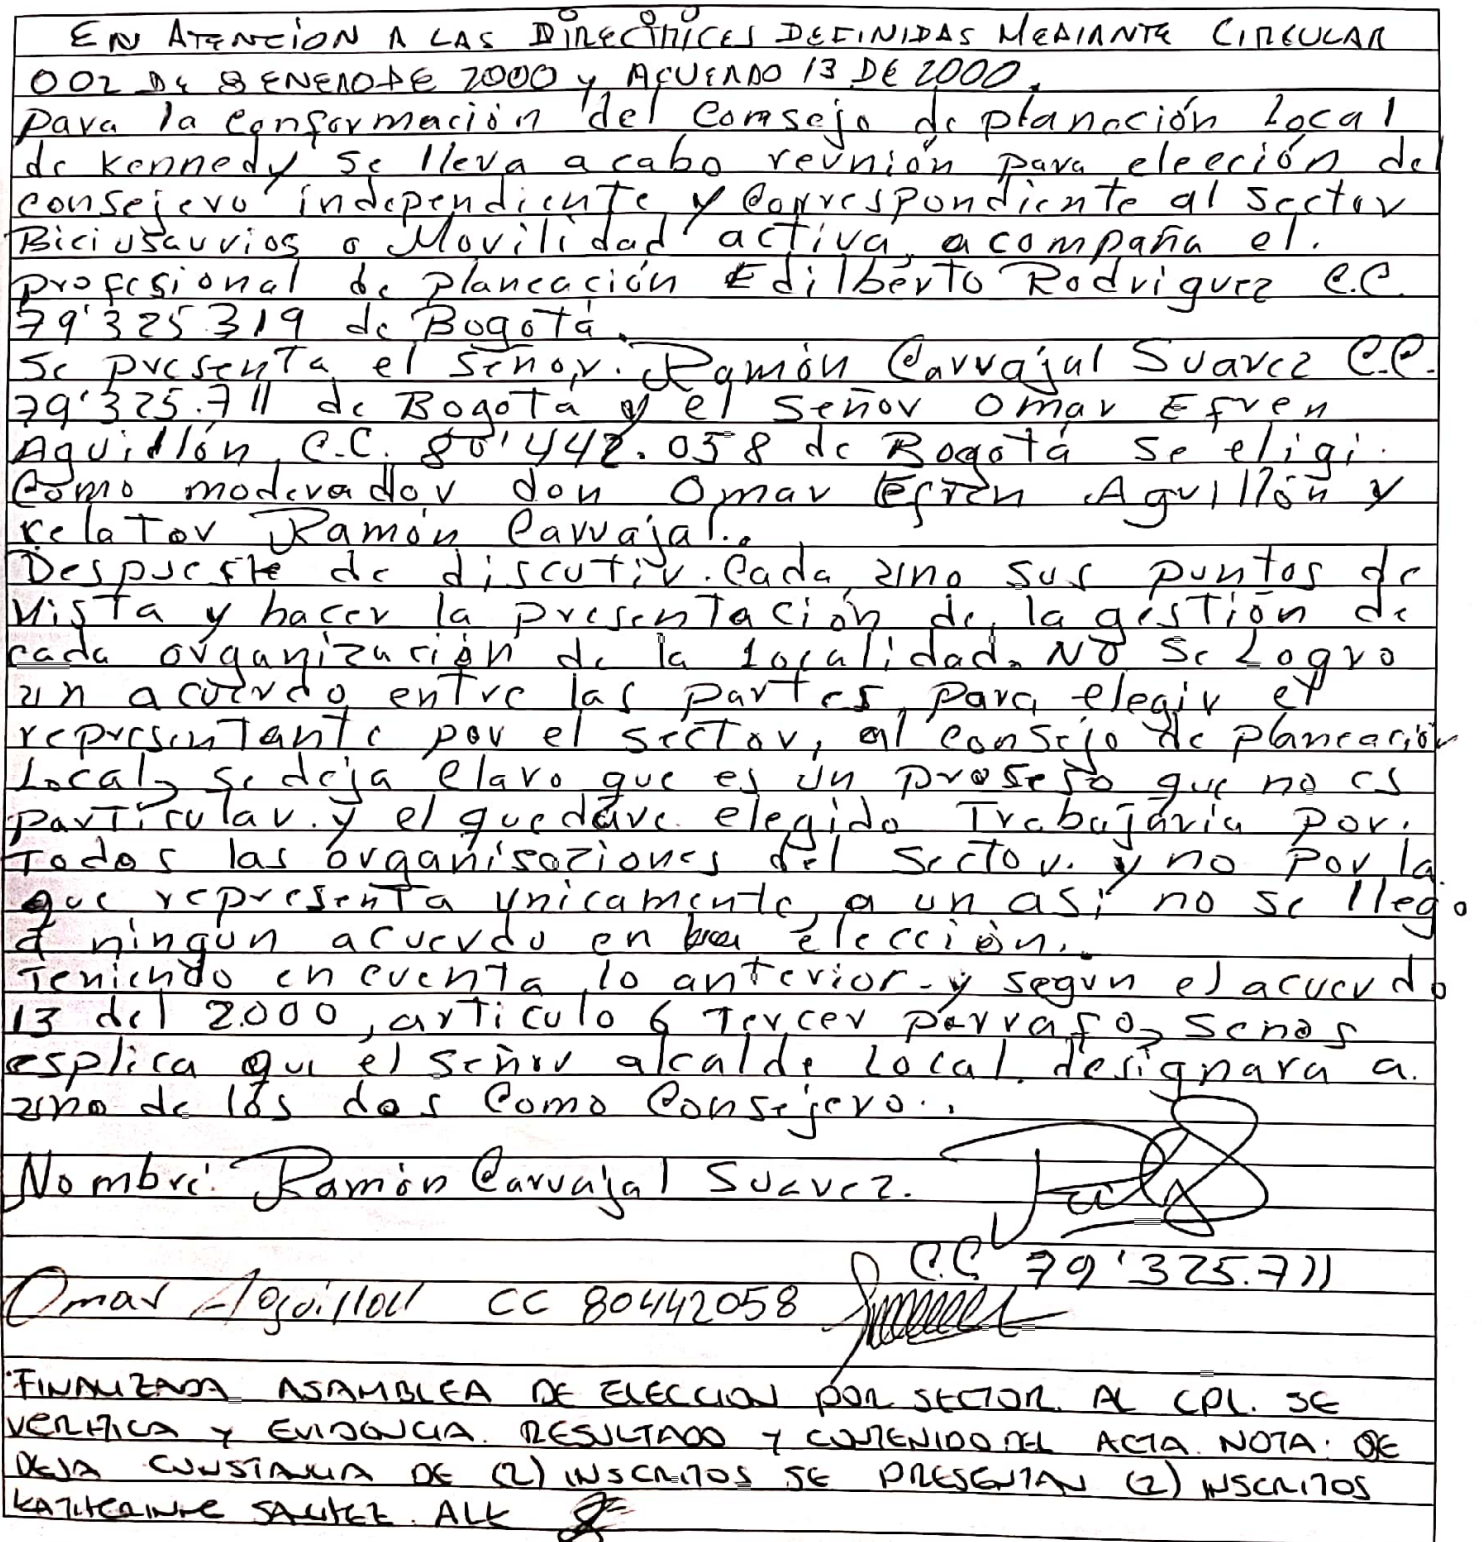 EN ATENCION A LAS DIRECTRICES DEFINIDAS MEDIANTE CIRCULAR
002 DE 8 ENERO DE 2000 y ACUERDO 13 DE 2000.
para la conformación del Consejo de planación Local
de Kennedy se lleva a cabo reunión para elección del
consejero independiente y Correspondiente al sector
Biciusuarios o Movilidad activa, acompaña el.
profesional de planeación Edilberto Rodriguez C.C.
79'325.319 de Bogotá.
se presenta el señor. Ramón Carvajal Suarez C.C.
79'325.711 de Bogotá y el señor Omar Efren
Aguillón C.C. 80'442.058 de Bogotá se eligi.
Como moderador don Omar Efren Aguillón y
relator Ramón Carvajal..
Despues de discutir. Cada uno sus puntos de
vista y hacer la presentación de la gestión de
cada organización de la localidad. NO se Logro
un acuerdo entre las partes para elegir el
representante por el sector, al consejo de planeación
Local, se deja claro que es un proseso que no es
particular. y el quedare elegido Trabajaria por.
Todos las organisaziones del sector. y no por la.
que representa ynicamente, a un así no se llego
a ningún acuerdo en elección.
Teniendo en cuenta lo anterior - y según el acuerdo
13 del 2.000, articulo 6 Tercer parrafo, senos
esplica que el señor alcalde Local designara a.
uno de los dos Como Consejero..
Nombre: Ramón Carvajal Suarez.
C.C 79'325.711
Omar Aguillon CC 80442058
FINALIZADA ASAMBLEA DE ELECCION POR SECTOR AL CPL. SE
VERIFICA Y EVIDENCIA. RESULTADO Y CONTENIDO DEL ACTA. NOTA: SE
DEJA CONSTANCIA DE (2) INSCRITOS SE PRESENTAN (2) INSCRITOS
KATHERINNE ALK